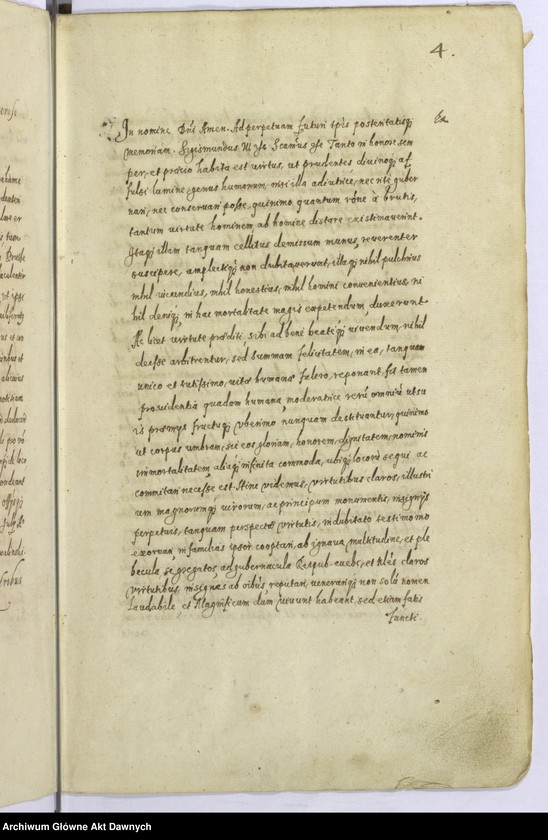 4.
In nomine Dni Amen. Ad perpetuam futuri tpis posteritatisq
memoriam. Sigismundus III etc Tanto in honore sem
per, et precio habita est virtus, ut prudentes divinoq af
fulsi lumine, genus humanum, nisi illa adiutrice, nec rite guber
nari, nec conservari posse, quinimo quantum rõne a brutis,
tantum virtute hominem, ab homine distare existimaverint.
Itaq illam tanquam cellitus demissum munus, reverenter
suscipere, amplectiq non dubitaverunt, illaq nihil pulchrius
nihil iucundius, nihil honestius, nihil homini convenientius, ni
hil deniq in hac mortalitate magis expetendum duxerunt.
Ac licet virtute præditi, sibi ad bene beateq vivendum nihil
deesse arbitrentur, sed summam felicitatem, in ea, tanquam
unico et tutissimo, vitæ humanæ reponant, fit tamen
providentia quadam humana moderatrice rerũ omniũ ut su
is præmiis fructuq uberrimo nunquam destituantur, quinimo
ut corpus umbram, sic eos gloriam, honorem, dignitatem, nominis
immortalitatem aliaq infinita commoda, ubiq locorũ sequi ac
commitari necesse est. Hinc videmus, virtutibus claros, illustri
um magnorumq virorum, ac principum monumentis, insigniis
perpetuis, tanquam perspectæ virtutis, indubitato testimonio
exornari, in familias ipsor cooptari, ab ignava multitudine, et ple
becula segregatos, ad gubernacula Reipub. evehi, et tales claros
virtutibus, insignes ab oibus reputari, venerariq non solũ nomen
Laudabile, et Magnificum dum vivunt habeant, sed etiam fatis
functi.
Archiwum Główne Akt Dawnych